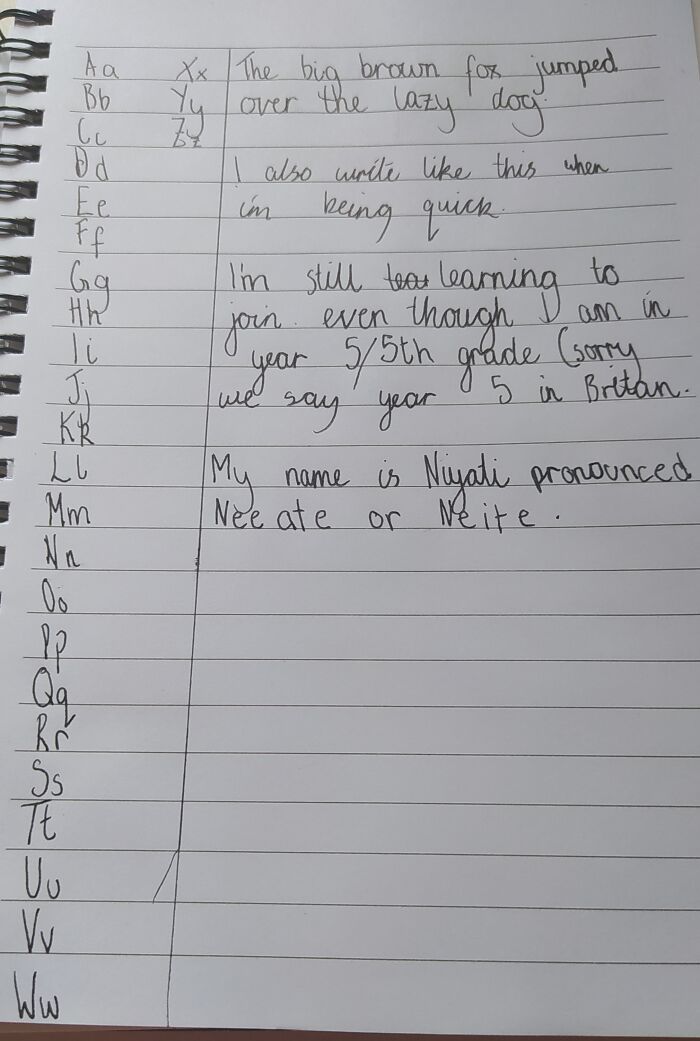 Aa
Bb
Cc
Dd
Ee
Ff
Gg
Hh
Ii
Jj
Kk
Ll
Mm
Nn
Oo
Pp
Qq
Rr
Ss
Tt
Uu
Vv
Ww
Xx
Yy
Zz
The big brown fox jumped
over the lazy dog.
I also write like this when
i'm being quick.
I'm still learning to
join. even though I am in
year 5/5th grade (sorry
we say year 5 in Britan.
My name is Niyati pronounced
Nee ate or Neite.